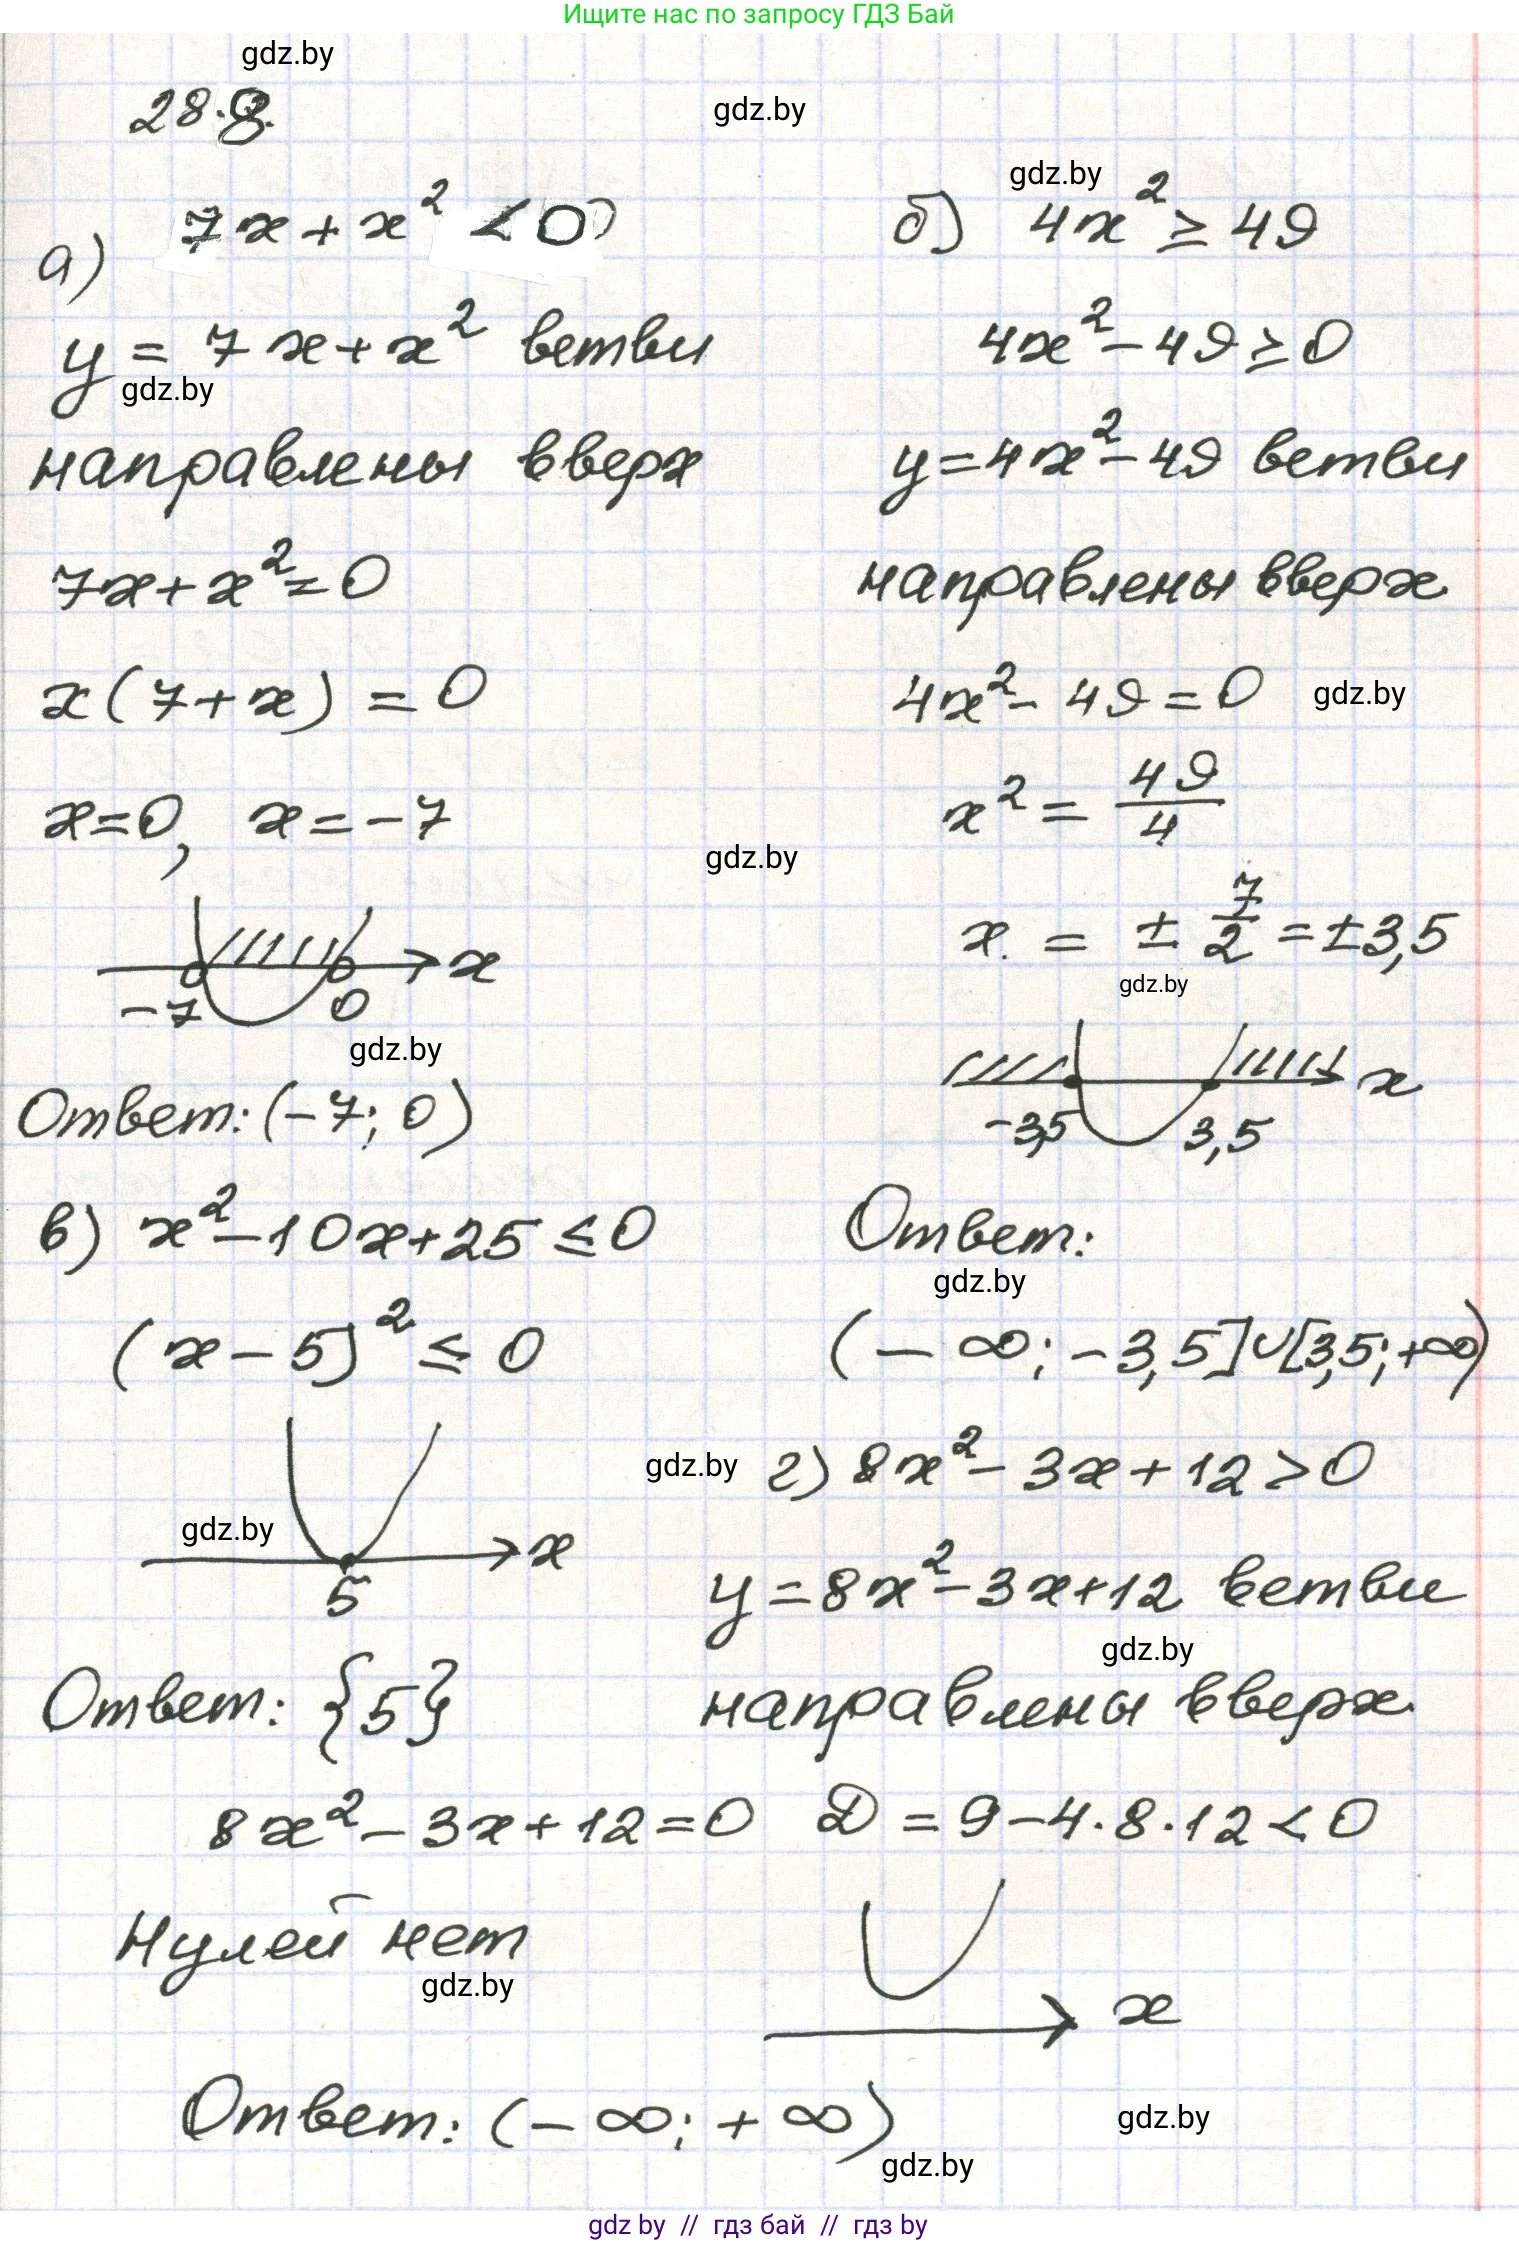 Ищите нас по запросу ГДЗ Бай
gdz.by
28.8.
gdz.by
gdz.by
а) 7x + x² < 0
y = 7x + x² ветви
gdz.by
направлены вверх
7x + x² = 0
x(7 + x) = 0
x = 0, x = -7
gdz.by
x
-7 0
gdz.by
Ответ: (-7; 0)
б) 4x² ≥ 49
4x² - 49 ≥ 0
y = 4x² - 49 ветви
направлены вверх
4x² - 49 = 0 gdz.by
x² = 49/4
x = ± 7/2 = ±3,5
gdz.by
x
-3,5 3,5
Ответ:
gdz.by
(-∞; -3,5]∪[3,5; +∞)
в) x² - 10x + 25 ≤ 0
(x - 5)² ≤ 0
gdz.by
x
5
Ответ: {5}
gdz.by
г) 8x² - 3x + 12 > 0
y = 8x² - 3x + 12 ветви
gdz.by
направлены вверх
8x² - 3x + 12 = 0 D = 9 - 4·8·12 < 0
Нулей нет
gdz.by
x
Ответ: (-∞; +∞)
gdz.by
gdz.by
gdz by // гдз бай // гдз by